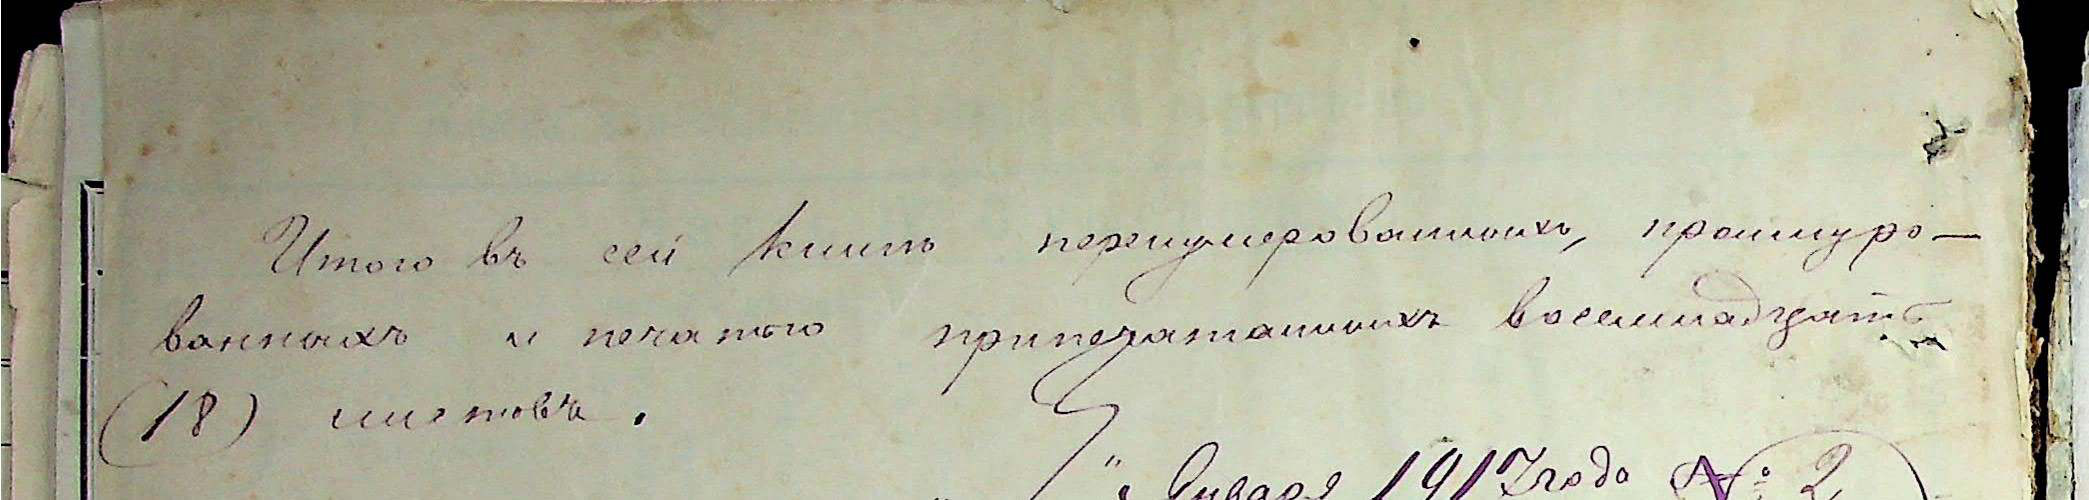 Итого въ сей книгѣ перенумерованныхъ, прошнуро-
ванныхъ и печатью припечатанныхъ восемнадцать
(18) листовъ.
" Января 1917 года № 2